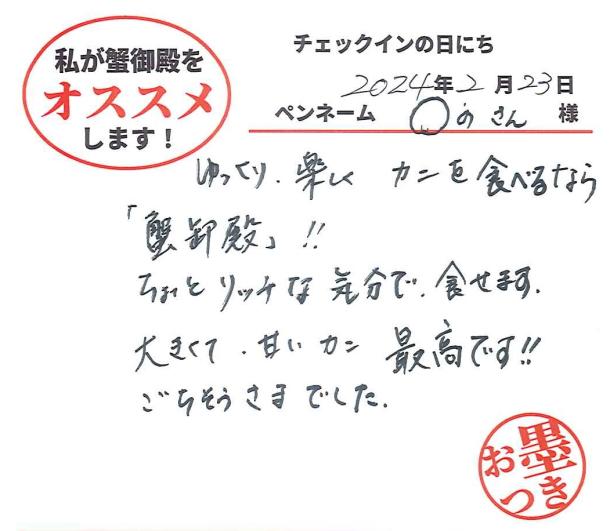 私が蟹御殿を
オススメ
します！
チェックインの日にち
2024年2月23日
ペンネーム ○のさん 様
ゆっくり、楽しく カニを食べるなら
「蟹御殿」!!
ちょっとリッチな気分で、食せます。
大きくて、甘いカニ 最高です!!
ごちそうさまでした。
お墨
つき